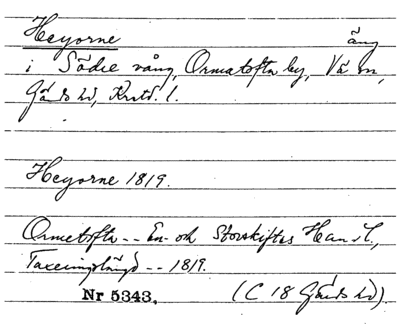 Heyorne äng
i Södre vång, Ormatofta by, Vä sn,
Gärds hd, Krstd. l.
Heyorne 1819.
Ormetofta -- En- och Storskiftes Handl.,
Taxeringslängd -- 1819.
Nr 5343. (C 18 Gärds hd).